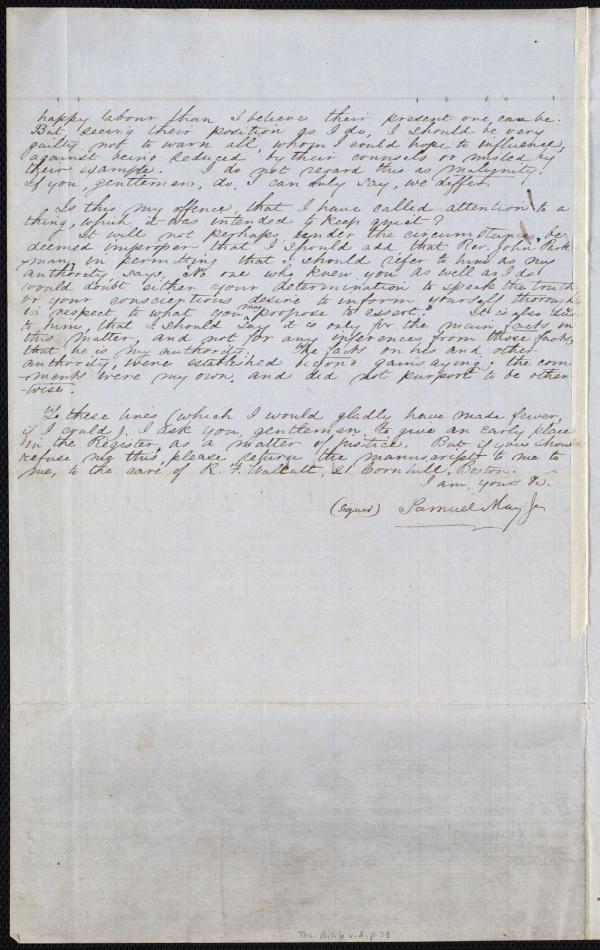 happy labour than I believe their present one, can be.
But seeing their position as I do, I should be very
guilty not to warn all, whom I could hope to influence,
against being seduced by their counsels or misled by
their example. I do not regard this as malignity.
If you, gentlemen, do, I can only say, we differ.
Is this my offence, that I have called attention to a
thing, which it was intended to keep quiet?
It will not perhaps, under the circumstances, be
deemed improper that I should add, that Rev. John Park-
-man, in permitting that I should refer to him as my
authority, says, "No one who knew you as well as I do
would doubt either your determination to speak the truth
or your conscientious desire to inform yourself thoroughly
in respect to what you may propose to assert." It is also due
to him, that I should say it is only for the main facts in
this matter, and not for any inferences from those facts,
that he is my authority. The facts on his and other
authority, were established beyond gainsaying; the com
-ments were my own, and did not purport to be other
-wise.
To these lines (which I would gladly have made fewer,
if I could), I ask you, gentlemen, to give an early place
in the Register, as a matter of justice. But if you should
refuse me this, please return the manuscript to me to
me, to the care of R. F. Wallcutt, 21 Cornhill, Boston.
I am yours &c.
(Signed) Samuel May Jr
Ms. B.1.6 v.4, p.73